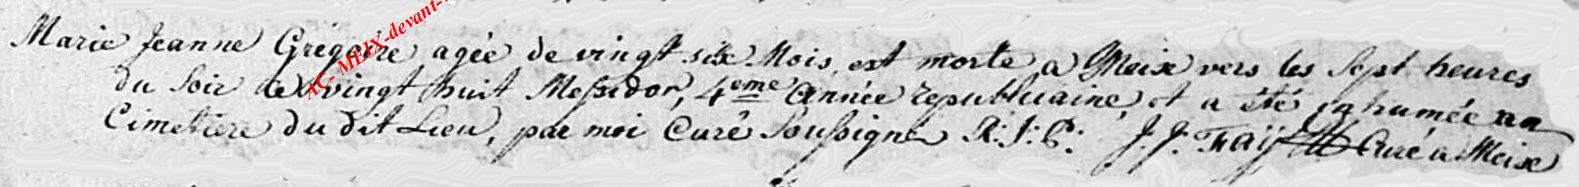 Marie Jeanne Grégoire agée de vingt six Mois, est morte a Meix vers les Sept heures
du Soir le vingt huit Messidor, 4eme année republicaine, et a été inhumée au
Cimetiere du dit Lieu, par moi Curé Soussigné R: I: P: J. J. Faÿ Curé a Meix
AC- MEIX-devant-